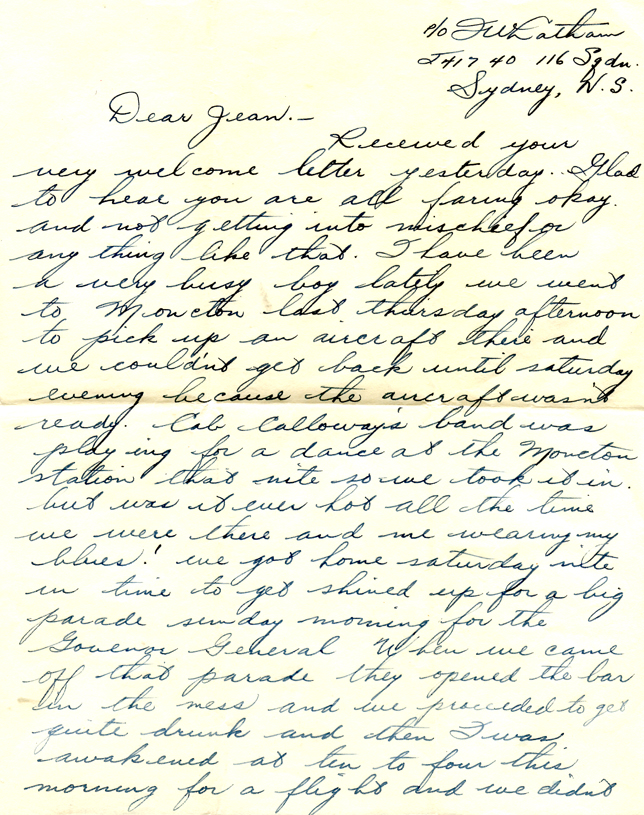 P/O J W Latham
J41740 116 Sqdn.
Sydney, N.S.
Dear Jean.—
Received your
very welcome letter yesterday. Glad
to hear you are all faring okay.
and not getting into mischief or
any thing like that. I have been
a very busy boy lately we went
to Moncton last thursday afternoon
to pick up an aircraft there and
we couldn't get back until saturday
evening because the aircraft wasn't
ready. Cab Calloway's band was
playing for a dance at the Moncton
station that nite so we took it in.
but was it ever hot all the time
we were there and me wearing my
blues! we got home saturday nite
in time to get shined up for a big
parade sunday morning for the
Govenor General When we came
off that parade they opened the bar
in the mess and we proceeded to get
quite drunk and then I was
awakened at ten to four this
morning for a flight and we didn't